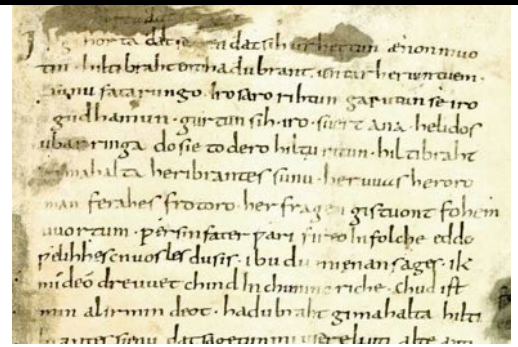 gihorta dat seggen dat sih urhettun ænon muo
tin · hiltibraht enti hadubrant · untar heriun tuem ·
sunu fatarungo · iro saro rihtun garutun se iro
gudhamun · gurtun sih · iro · suert ana · helidos
ubar ringa do sie to dero hiltu ritun · hiltibraht
gimahalta heribrantes sunu · her uuas heroro
man ferahes frotoro · her fragen gistuont fohem
uuortum · ƿer sin fater ƿari fireo In folche eddo
ƿelihhes cnuosles du sis · ibu du mi enan sages · ik
mideo dre uuet chind In chunincriche · chud ist
min al irmin deot · hadubraht gimahalta hilti
brantes sunu dat sagetun mi usere liuti alte anti